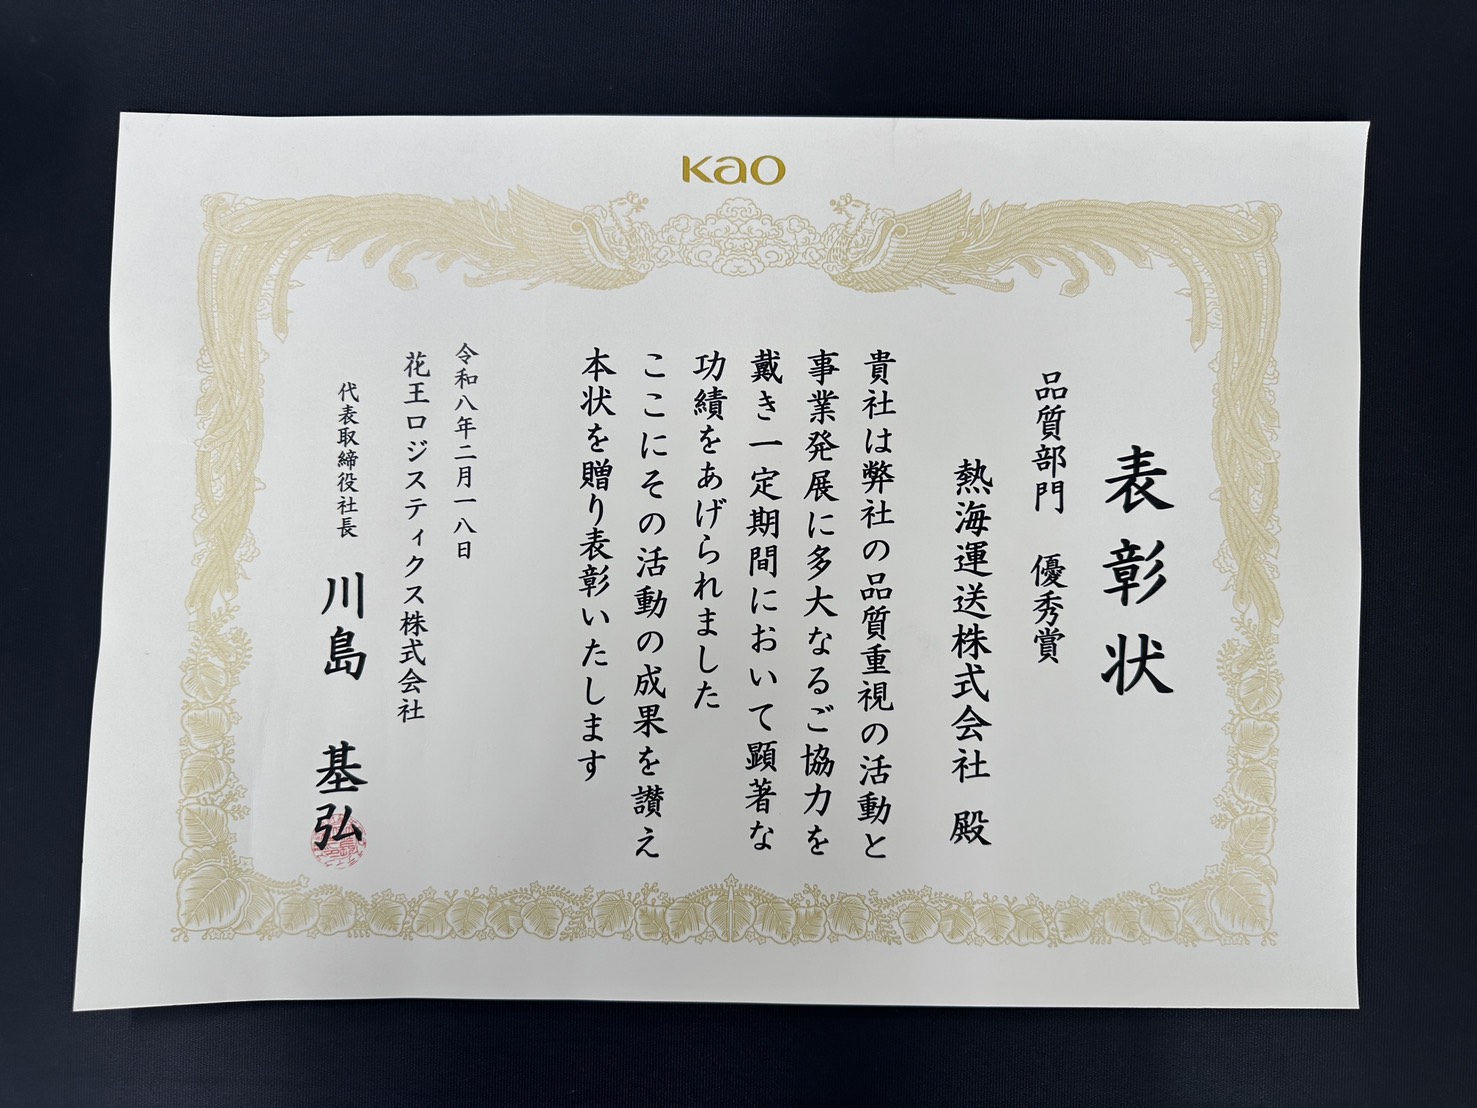 Kao
表彰状
品質部門 優秀賞
熱海運送株式会社 殿
貴社は弊社の品質重視の活動と
事業発展に多大なるご協力を
戴き一定期間において顕著な
功績をあげられました
ここにその活動の成果を讃え
本状を贈り表彰いたします
令和八年二月一八日
花王ロジスティクス株式会社
代表取締役社長 川島 基弘